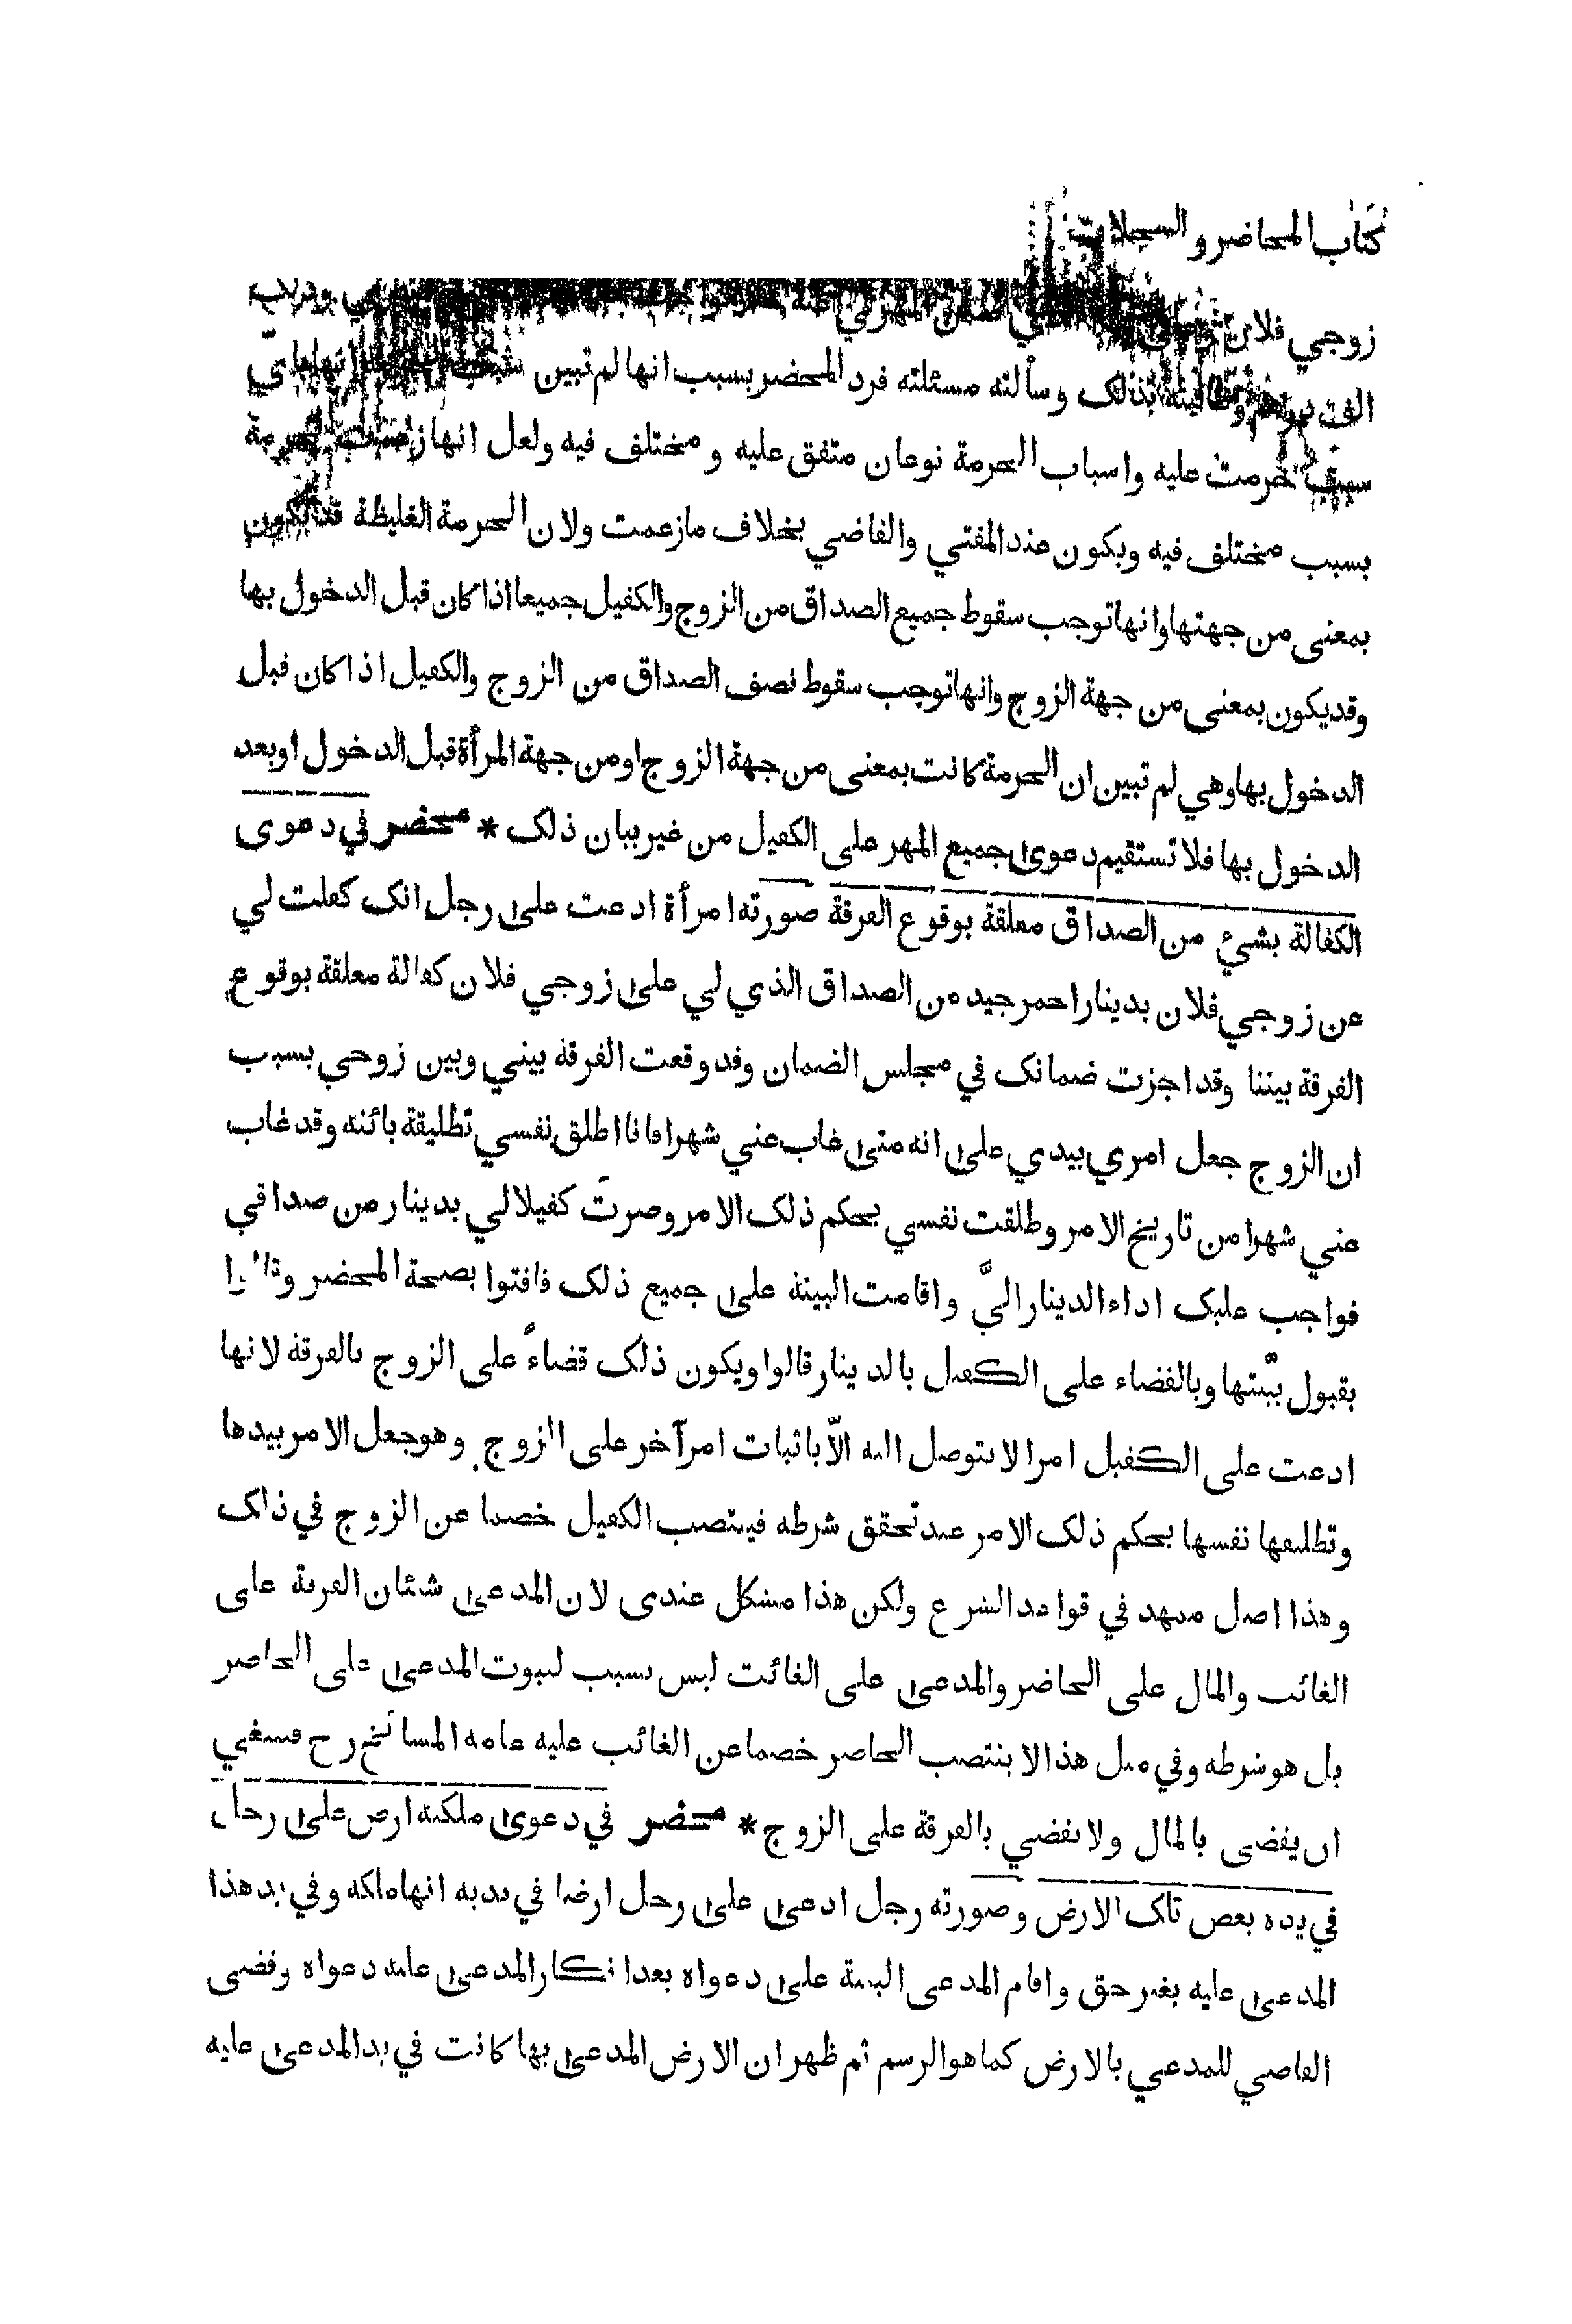 كتاب المحاضر و السجلات
زوجي فلان
وطالبته بذلك وسألته مسئلته فرد المحضر بسبب انها لم تبين
حرمت عليه واسباب الحرمة نوعان متفق عليه و مختلف فيه ولعل انها زعمت الحرمة
بسبب مختلف فيه ويكون عند المفتي والقاضي بخلاف ما زعمت ولان الحرمة الغليظة قد تكون
بمعنى من جهتها وانها توجب سقوط جميع الصداق من الزوج والكفيل جميعا اذا كان قبل الدخول بها
وقد يكون بمعنى من جهة الزوج وانها توجب سقوط نصف الصداق من الزوج والكفيل اذا كان قبل
الدخول بها وهي لم تبين ان الحرمة كانت بمعنى من جهة الزوج او من جهة المرأة قبل الدخول او بعد
الدخول بها فلا تستقيم دعوى جميع المهر على الكفيل من غير بيان ذلك * محضر في دعوى
الكفالة بشيء من الصداق معلقة بوقوع الفرقة صورته امرأة ادعت على رجل انك كفلت لي
عن زوجي فلان بدينار احمر جيد من الصداق الذي لي على زوجي فلان كفالة معلقة بوقوع
الفرقة بيننا وقد اجزت ضمانك في مجلس الضمان وقد وقعت الفرقة بيني وبين زوجي بسبب
ان الزوج جعل امري بيدي على انه متى غاب عني شهرا فانا اطلق نفسي تطليقة بائنة وقد غاب
عني شهرا من تاريخ الامر وطلقت نفسي بحكم ذلك الامر وصرت كفيلا لي بدينار من صداقي
فواجب عليك اداء الدينار اليَّ واقامت البينة على جميع ذلك فافتوا بصحة المحضر وقالوا
بقبول بيّنتها وبالقضاء على الكفيل بالدينار قالوا ويكون ذلك قضاءً على الزوج بالفرقة لانها
ادعت على الكفيل امرا لا يتوصل اليه الّا باثبات امر آخر على الزوج وهو جعل الامر بيدها
وتطليقها نفسها بحكم ذلك الامر عند تحقق شرطه فينتصب الكفيل خصما عن الزوج في ذلك
وهذا اصل ممهد في قواعد الشرع ولكن هذا مشكل عندى لان المدعى شئان الفرقة على
الغائب والمال على الحاضر والمدعى على الغائب ليس بسبب لثبوت المدعى على الحاضر
بل هو شرطه وفي مثل هذا لا ينتصب الحاضر خصما عن الغائب عليه عامة المشائخ رح فينبغي
ان يقضى بالمال ولا يقضي بالفرقة على الزوج * محضر في دعوى ملكية ارض على رجل
في يده بعض تلك الارض وصورته رجل ادعى على رجل ارضا في يديه انها ملكه وفي يد هذا
المدعى عليه بغير حق واقام المدعى البينة على دعواه بعد انكار المدعى عليه دعواه وقضى
القاضي للمدعي بالارض كما هو الرسم ثم ظهر ان الارض المدعى بها كانت في يد المدعى عليه